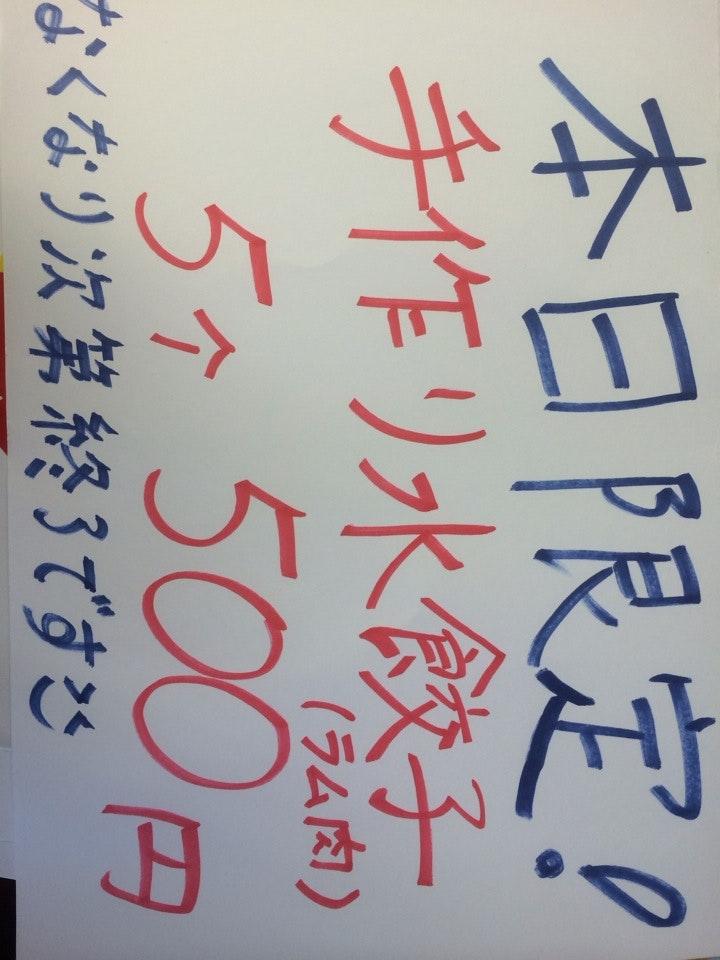 本日限定!
手作り水餃子
(ラム肉)
5个 500円
なくなり次第終了です